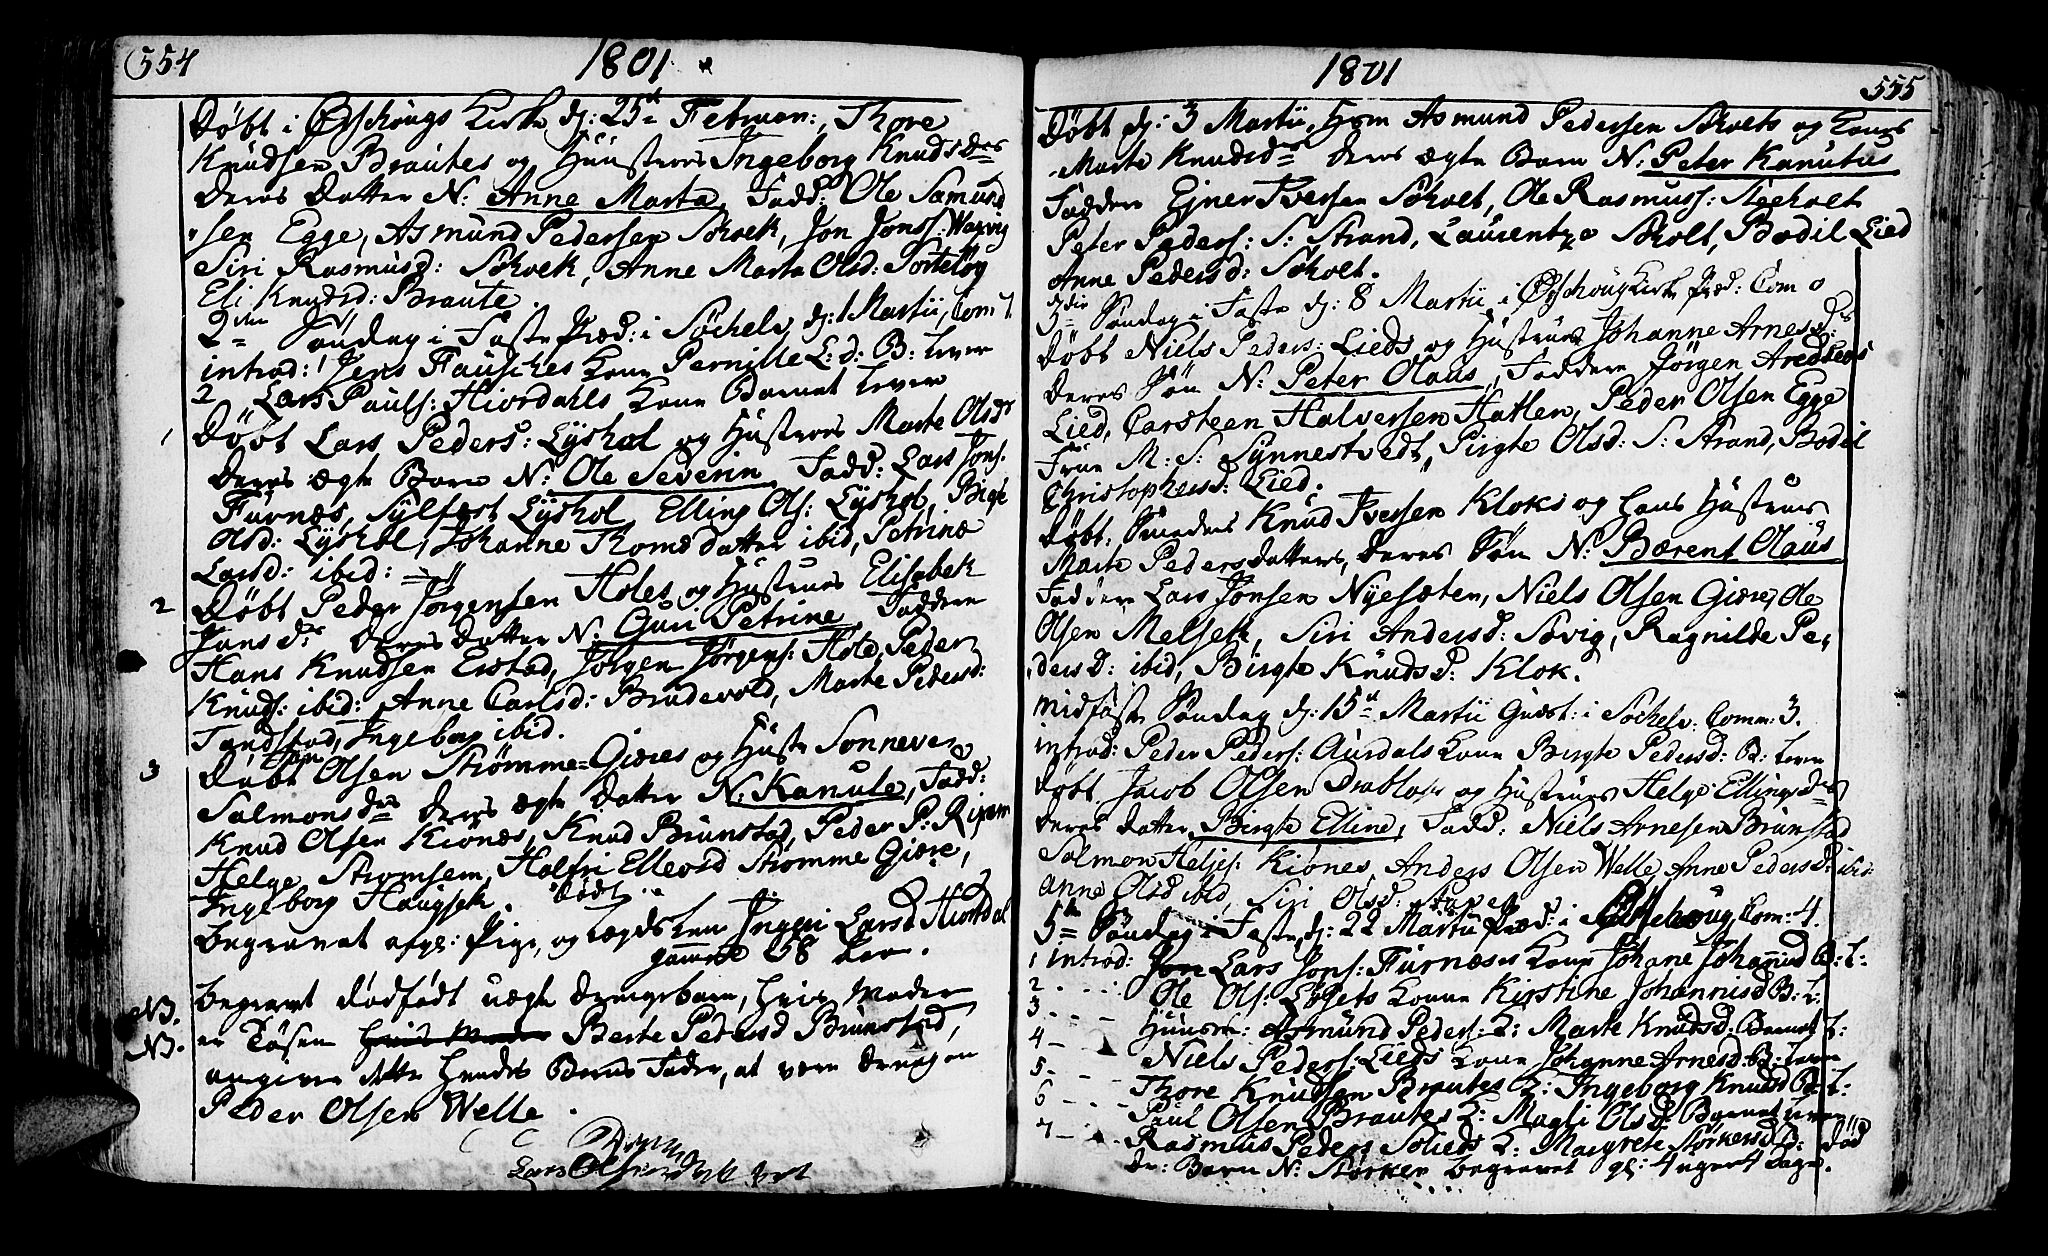 554
1801
Døbt i Ørschougs Kirke dj: 25de Februar:, Thore
Knudsen Brautes og Huustroes Ingeborg Knudsdes
deres datter N: Anne Marta, Fadd: Ole Samund
sen Egge, Asmund Pedersen Søholt, Jon Jonss:
Siri Rasmusd: Søholt, Anne Marta Olsd:
Eli Knudsd: Braute.
2den Søndag i Faste Præd: i Søchelv, dj: 1 Martii, Com
introd: Jens Fausches Kone Pernille L: d: B: lever
2 Lars Pauls: Hiordahls Kone Barnet lever
1 Døbt Lars Peders: Lyshol og Hustroes Marte Olsdr
deres ægte Barn N: Ole Severin Fadd: Lars Jons:
Furnæs, Sylfest Lyshol, Elling Ols: Lyshol, Birte
Olsd: Lyshol, Johanne Thomsdatter ibid, Petrine
Larsd: ibid:
2 Døbt Peder Jørgensen Holes og Hustrues Elisabek
Jonsdr deres datter N: Guri Petrine Faddere
Hans Knudsen Erstad, Jørgen Jørgens: Hole, Peder
Knuds: ibid: Anne Carlsd: Brudevold, Marte Pedersd:
Tandstad, Ingeborg ibid.
3 Døbt Olsen Strømme-Gieres og Hustr Sonneve
Salmonsdes deres ægte datter N: Kanute, Fadd:
Knud Olsen Kiønæs, Knud Brunstad, Peder P: Rixem
Helge Stromsem, Halfri Ellevsd Strømme Giære,
Ingeborg Haugsek. død
begravet afgl: Pige, og lægdslem Ingeri Larsd Hiordal
gammel 58 Aar.
NB. begravet dødfødt uægte drengebarn, hvis Moder
NB. er Tøsen hvis Moder Berte Pedersd Brunstad,
angiver dette hendes Barns Fader, at være drengen
Peder Olsen Welle.
Lars Olsen
1801
555
Døbt dj: 3 Martii, Asmund Pedersen Søholts og Kones
Marte Knudsdes deres ægte Barn N: Peter Kanutus
Faddere Ejner Iversen Søholt, Ole Rasmuss: Stegholt
Peter Peders: S: Strand, Laurentze Søholt, Bodil Lied
Anne Pedersd: Søholt.
3die Søndag i Faste dj: 8 Martii i Ørschoug Kirke Præd: Com 0
Døbt Niels Peders: Lieds og Hustrues Johanne Arnesdes
deres Søn N: Peter Olaus, Faddere Jørgen
Lied, Carsteen Halversen Hatlen, Peder Olsen Egge
Frue M: S: Synnestvedt, Birgte Olsd: S: Strand, Bodil
Christophersd: Lied.
Døbt: Knud Iversen Kloks og hans Hustrues
Marte Pedersdatters, deres Søn N: Bærent Olaus
Faddere Lars Jonsen Nyesæten, Niels Olsen Giere, Ole
Olsen Melsetk, Siri Andersd: Søvig, Ragnilde Pe-
dersd: ibid, Birgte Knudsd: Klok.
Midfaste Søndag dj: 15de Martii Gudst: i Søchelv Comm: 3.
introd: Peder Peders: Aurdals Kone Birgte Pedersd: B: lever
Døbt Jacob Olsen Drabløs og Hustrues Helge Ellingsdes
deres datter Birgte Elline, Fadd: Niels Arnesen Brunstad
Salmon Heljes: Kiønes, Anders Olsen Welle, Anne Pedersd: ibid:
Anne Olsd ibid, Siri Olsd:
5te Søndag i Faste, dj: 22 Martii Præd: i Com: 4.
1 introd: Jon Lars Jons: Furnæses Kone Johane Johannisd B: L:
2 Ole Ols: Kone Kirstine Johannisd B: L:
3 Huusm: Asmund Peders: K: Marte Knudsd: Barnet L:
4 Niels Peders: Lieds Kone Johanne Arnesd: B: lever
5 Thore Knudsen Brautes K: Ingeborg Knudsd B: L:
6 Paul Olsen Brautes K: Magli Olsd: Barnet lever
7 Rasmus Peders Solieds K: Margrete Størkersd B: død
dr: Barn N: Størker begravet gl: 4 uger 4 Dage.